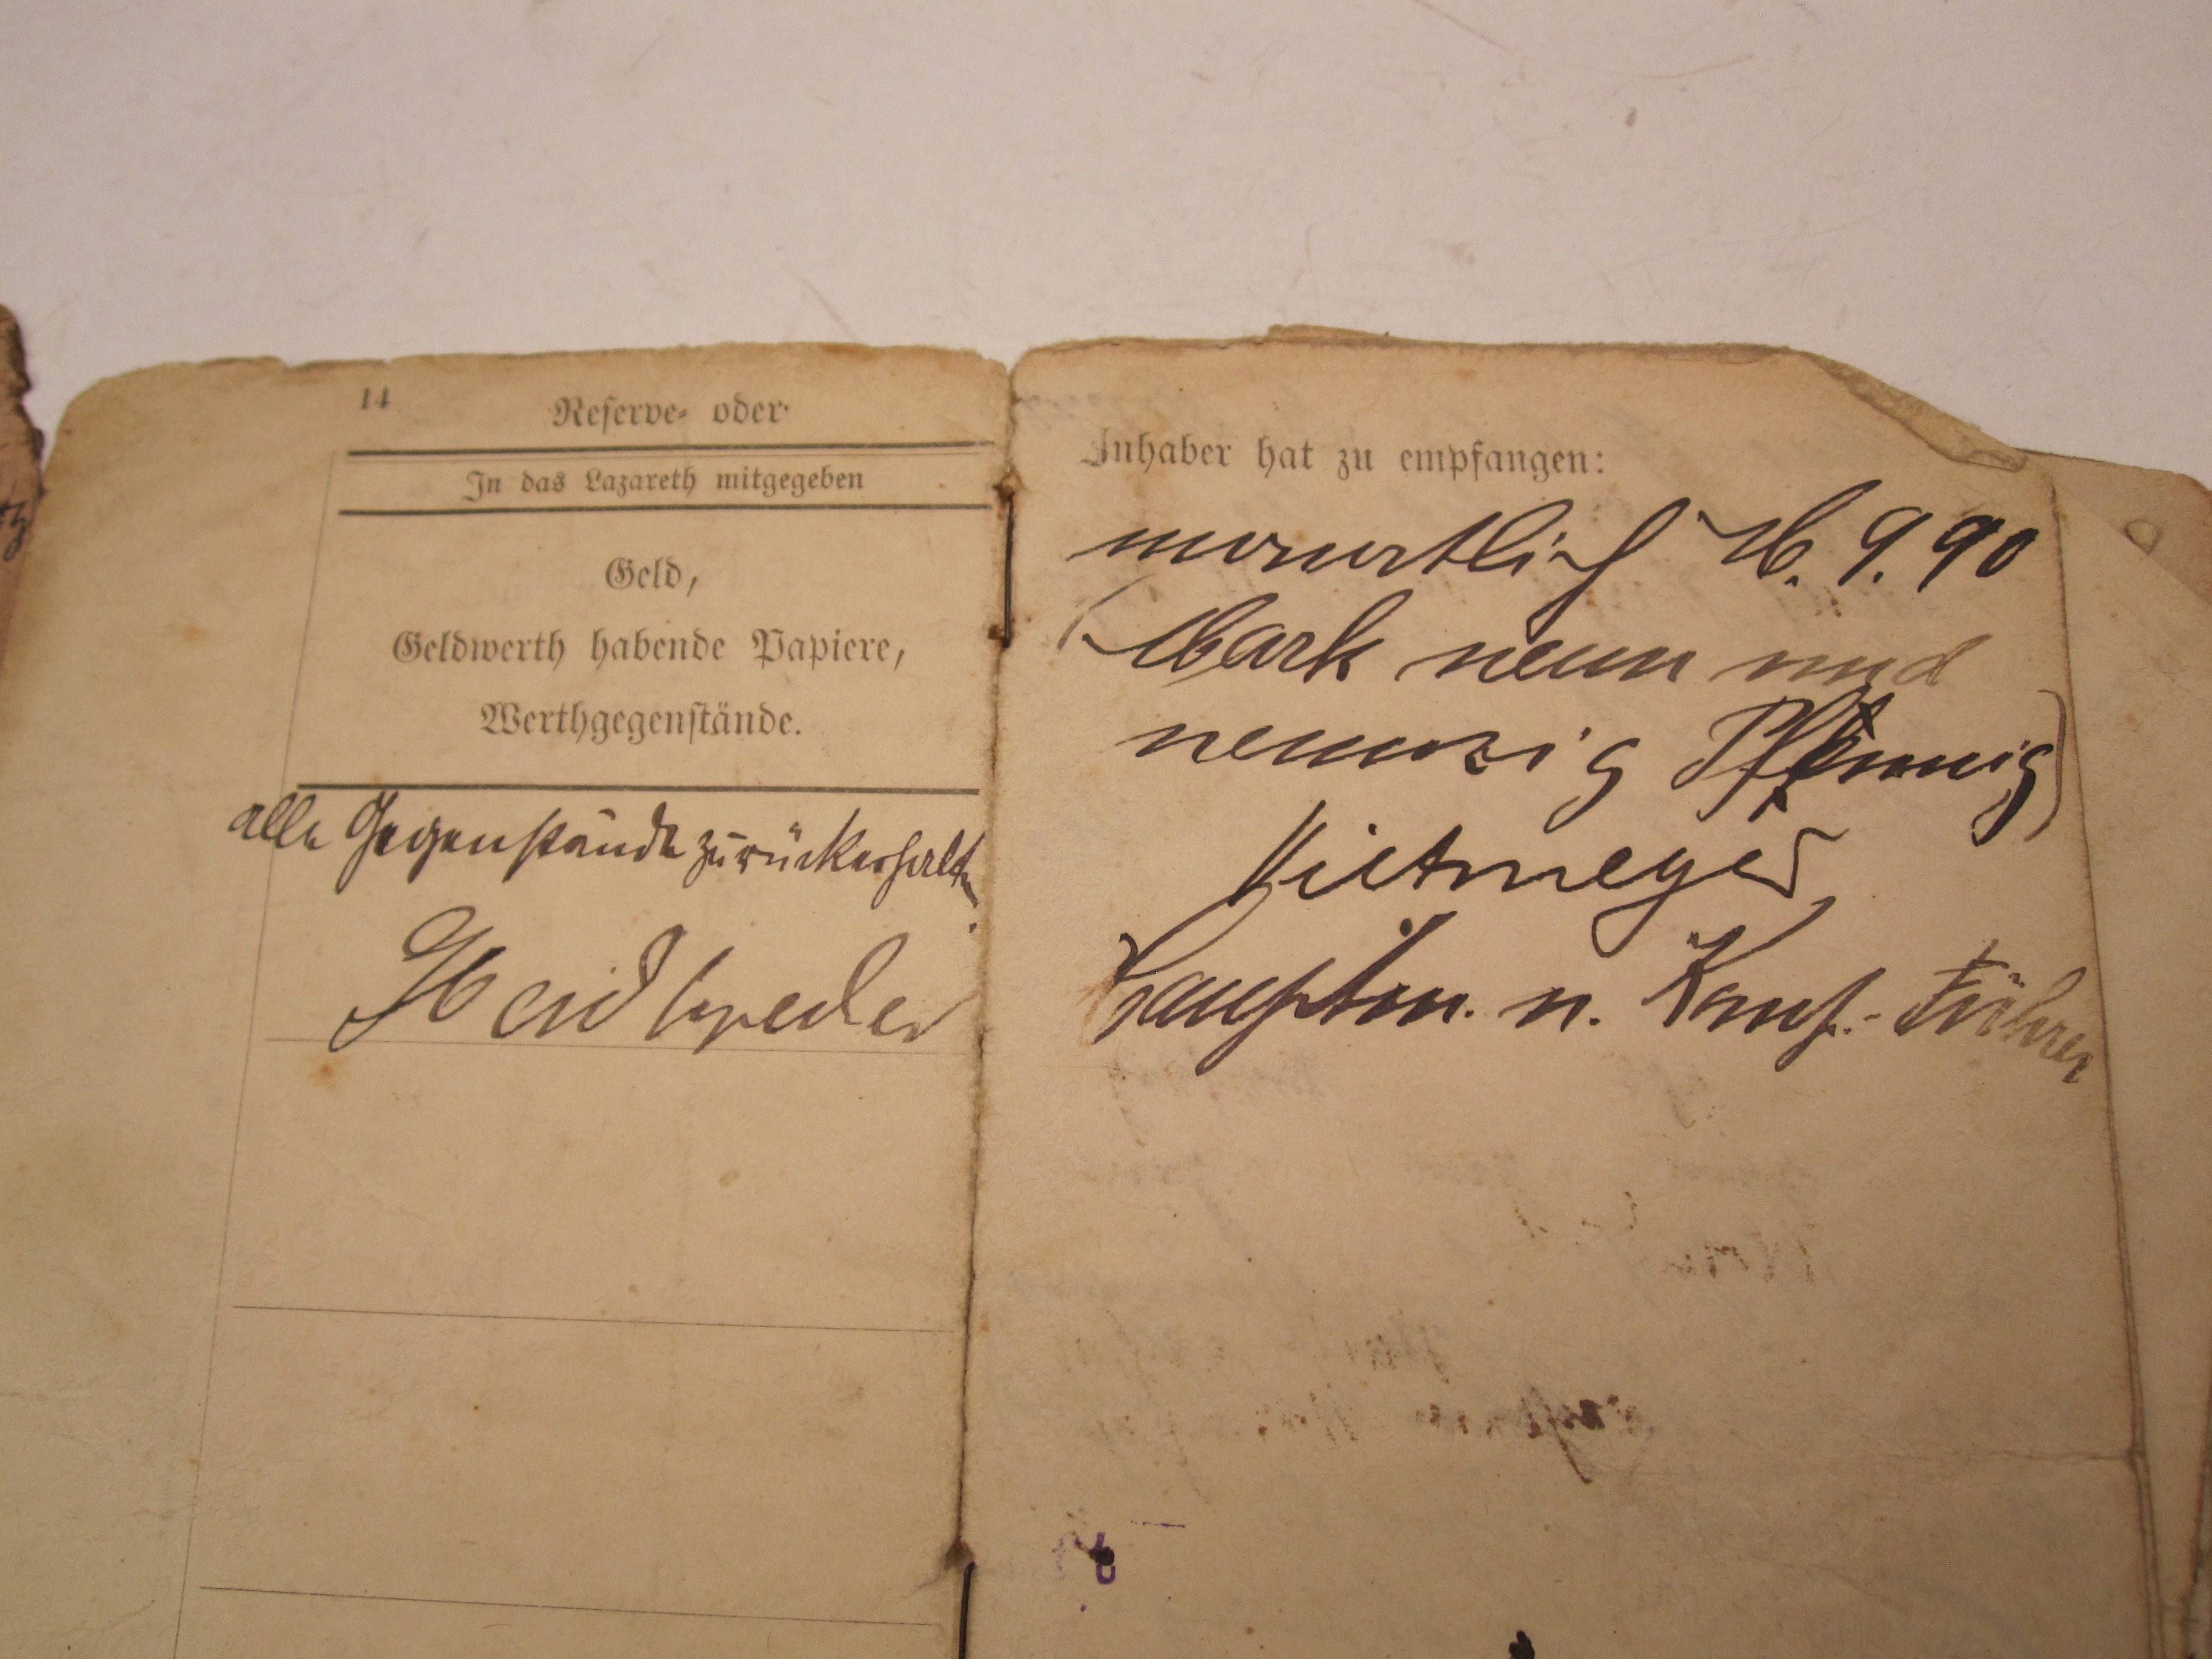 14
Reserve- oder
In das Lazareth mitgegeben
Geld,
Geldwerth habende Papiere,
Werthgegenstände.
alle Gegenstände zurückerhalten.
Inhaber hat zu empfangen:
monatlich M. 9.90
(Mark neun und
neunzig Pfennig)
Hauptm. u. Komp.-Führer